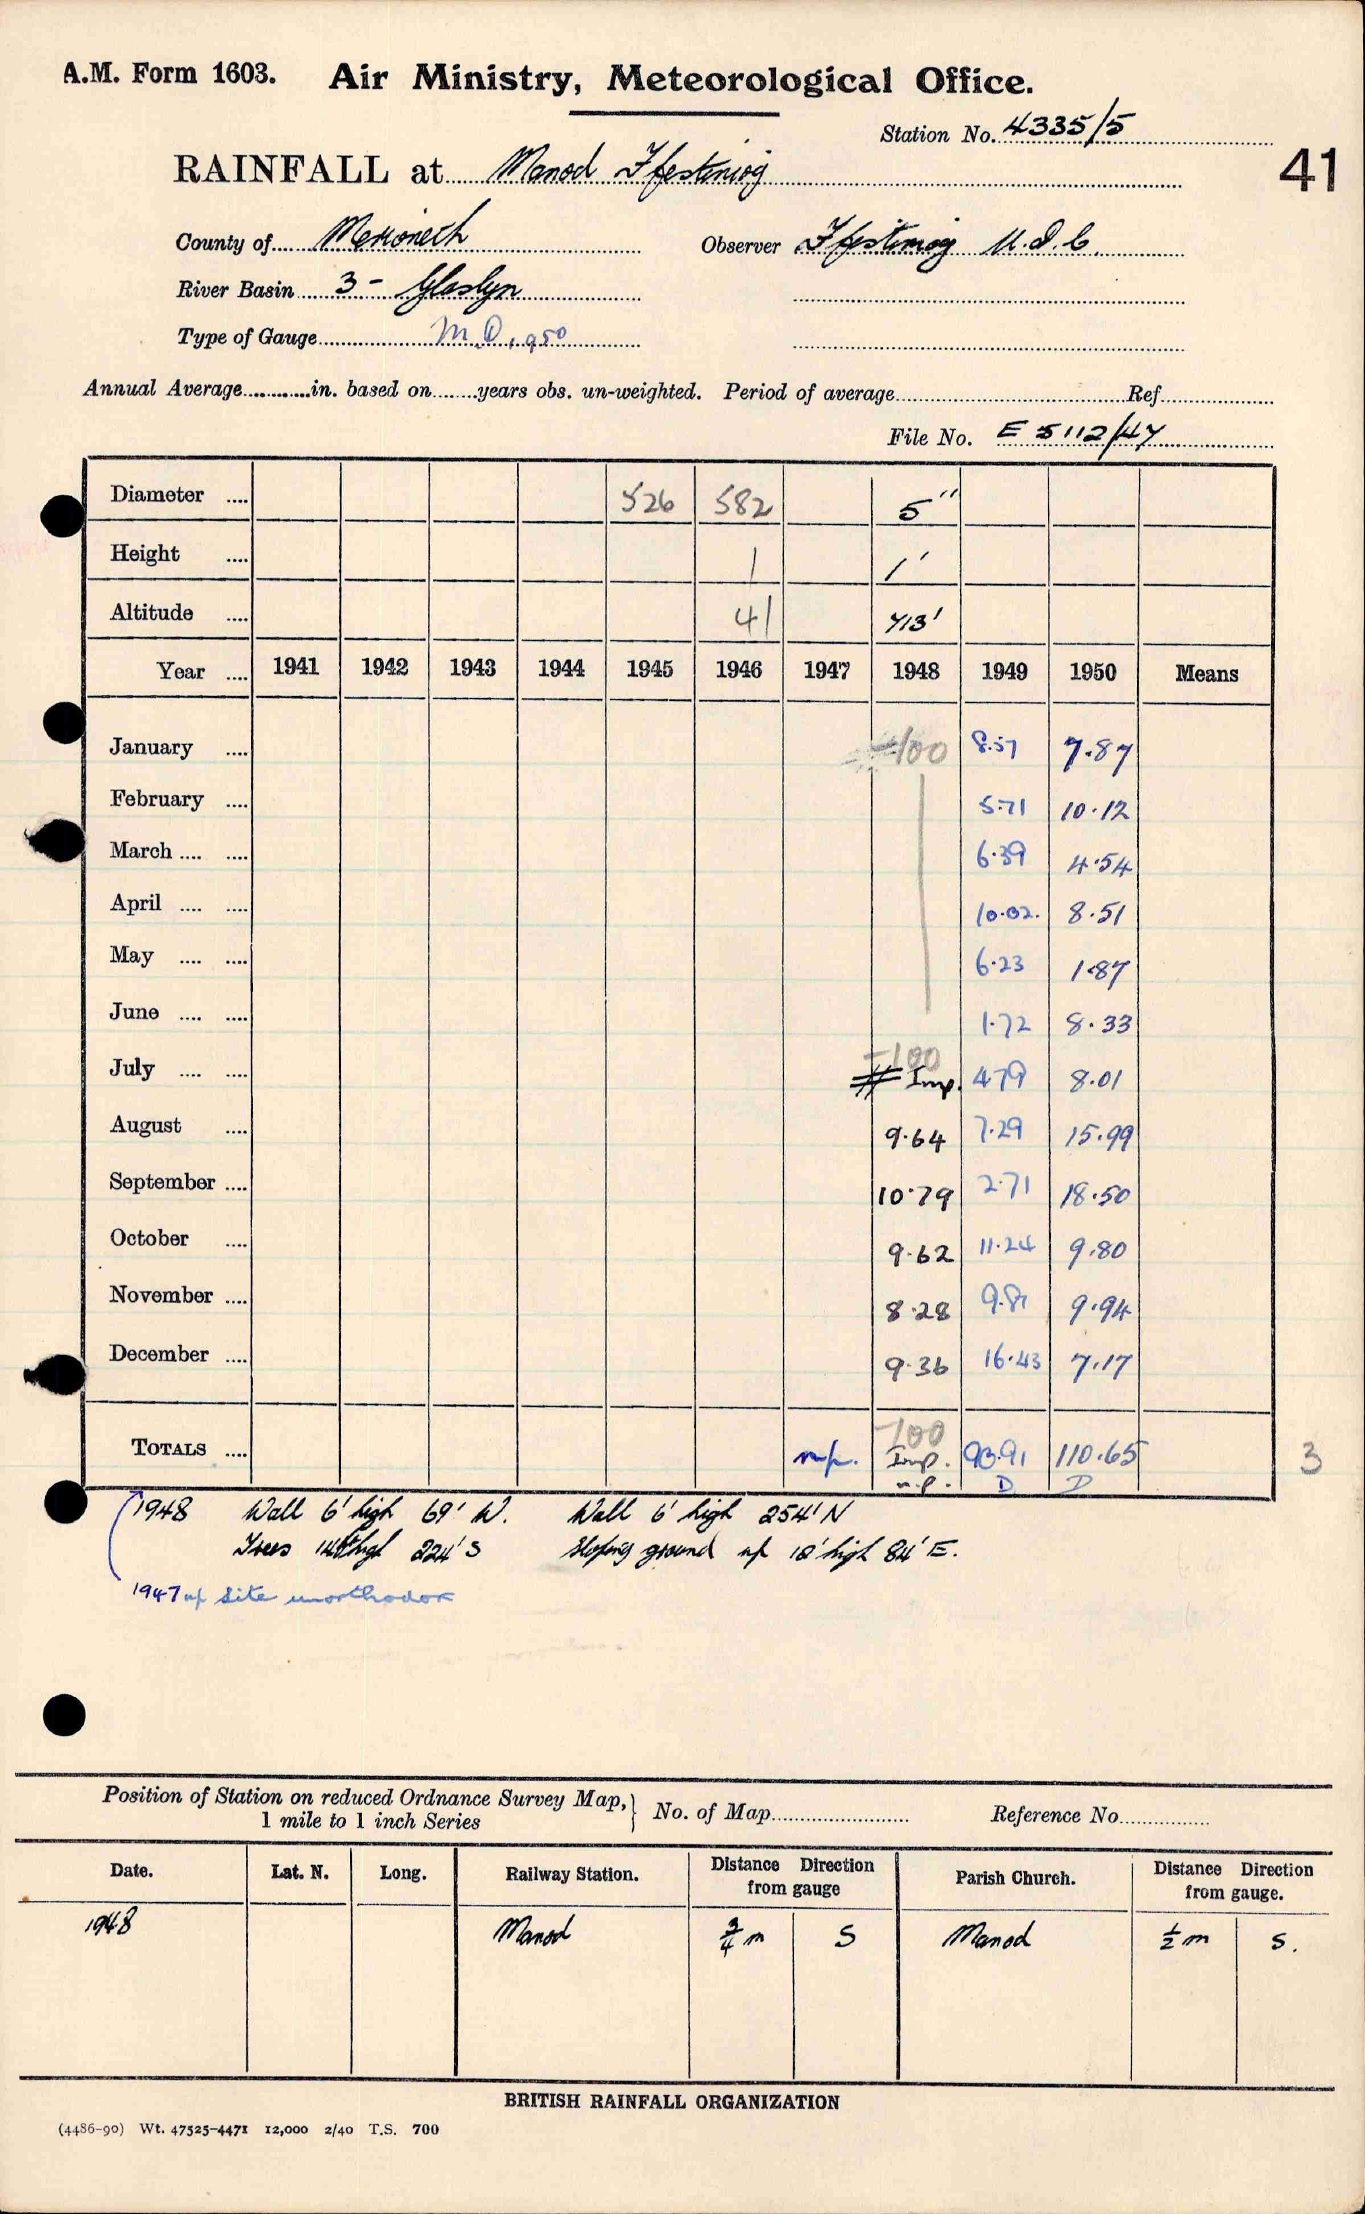 A.M. Form 1603. Air Ministry, Meteorological Office.
Station No. 4335/5
41
RAINFALL at Manod Ffestiniog
County of Merioneth Observer Ffestiniog U.D.C.
River Basin 3 - Glaslyn
Type of Gauge M.O. 
Annual Average in. based on years obs. un-weighted. Period of average Ref
File No. E 5112/47
Diameter 526 582 5"
Height 1 1'
Altitude 41 713'
Year 1941 1942 1943 1944 1945 1946 1947 1948 1949 1950 Means
January -100 8.57 7.87
February 5.71 10.12
March 6.39 4.54
April 10.02 8.51
May 6.23 1.87
June 1.72 8.33
-100
July # Imp. 4.79 8.01
August 9.64 7.29 15.99
September 10.79 2.71 18.50
October 9.62 11.24 9.80
November 8.28 9.94
December 9.36 16.43 7.17
-100
TOTALS n.p. Imp. 93.91 110.65 3
n.p. D D
1948 Wall 6' high 69' W. Wall 6' high 254' N
Trees high 224' S Sloping ground up high 84' E.
1947 np site unorthodox
Position of Station on reduced Ordnance Survey Map, 1 mile to 1 inch Series } No. of Map Reference No.
Date. Lat. N. Long. Railway Station. Distance Direction from gauge Parish Church. Distance Direction from gauge.
1948 Manod 3/4 m S Manod 1/2 m S.
BRITISH RAINFALL ORGANIZATION
(4486-90) Wt. 47525-4471 12,000 2/40 T.S. 700